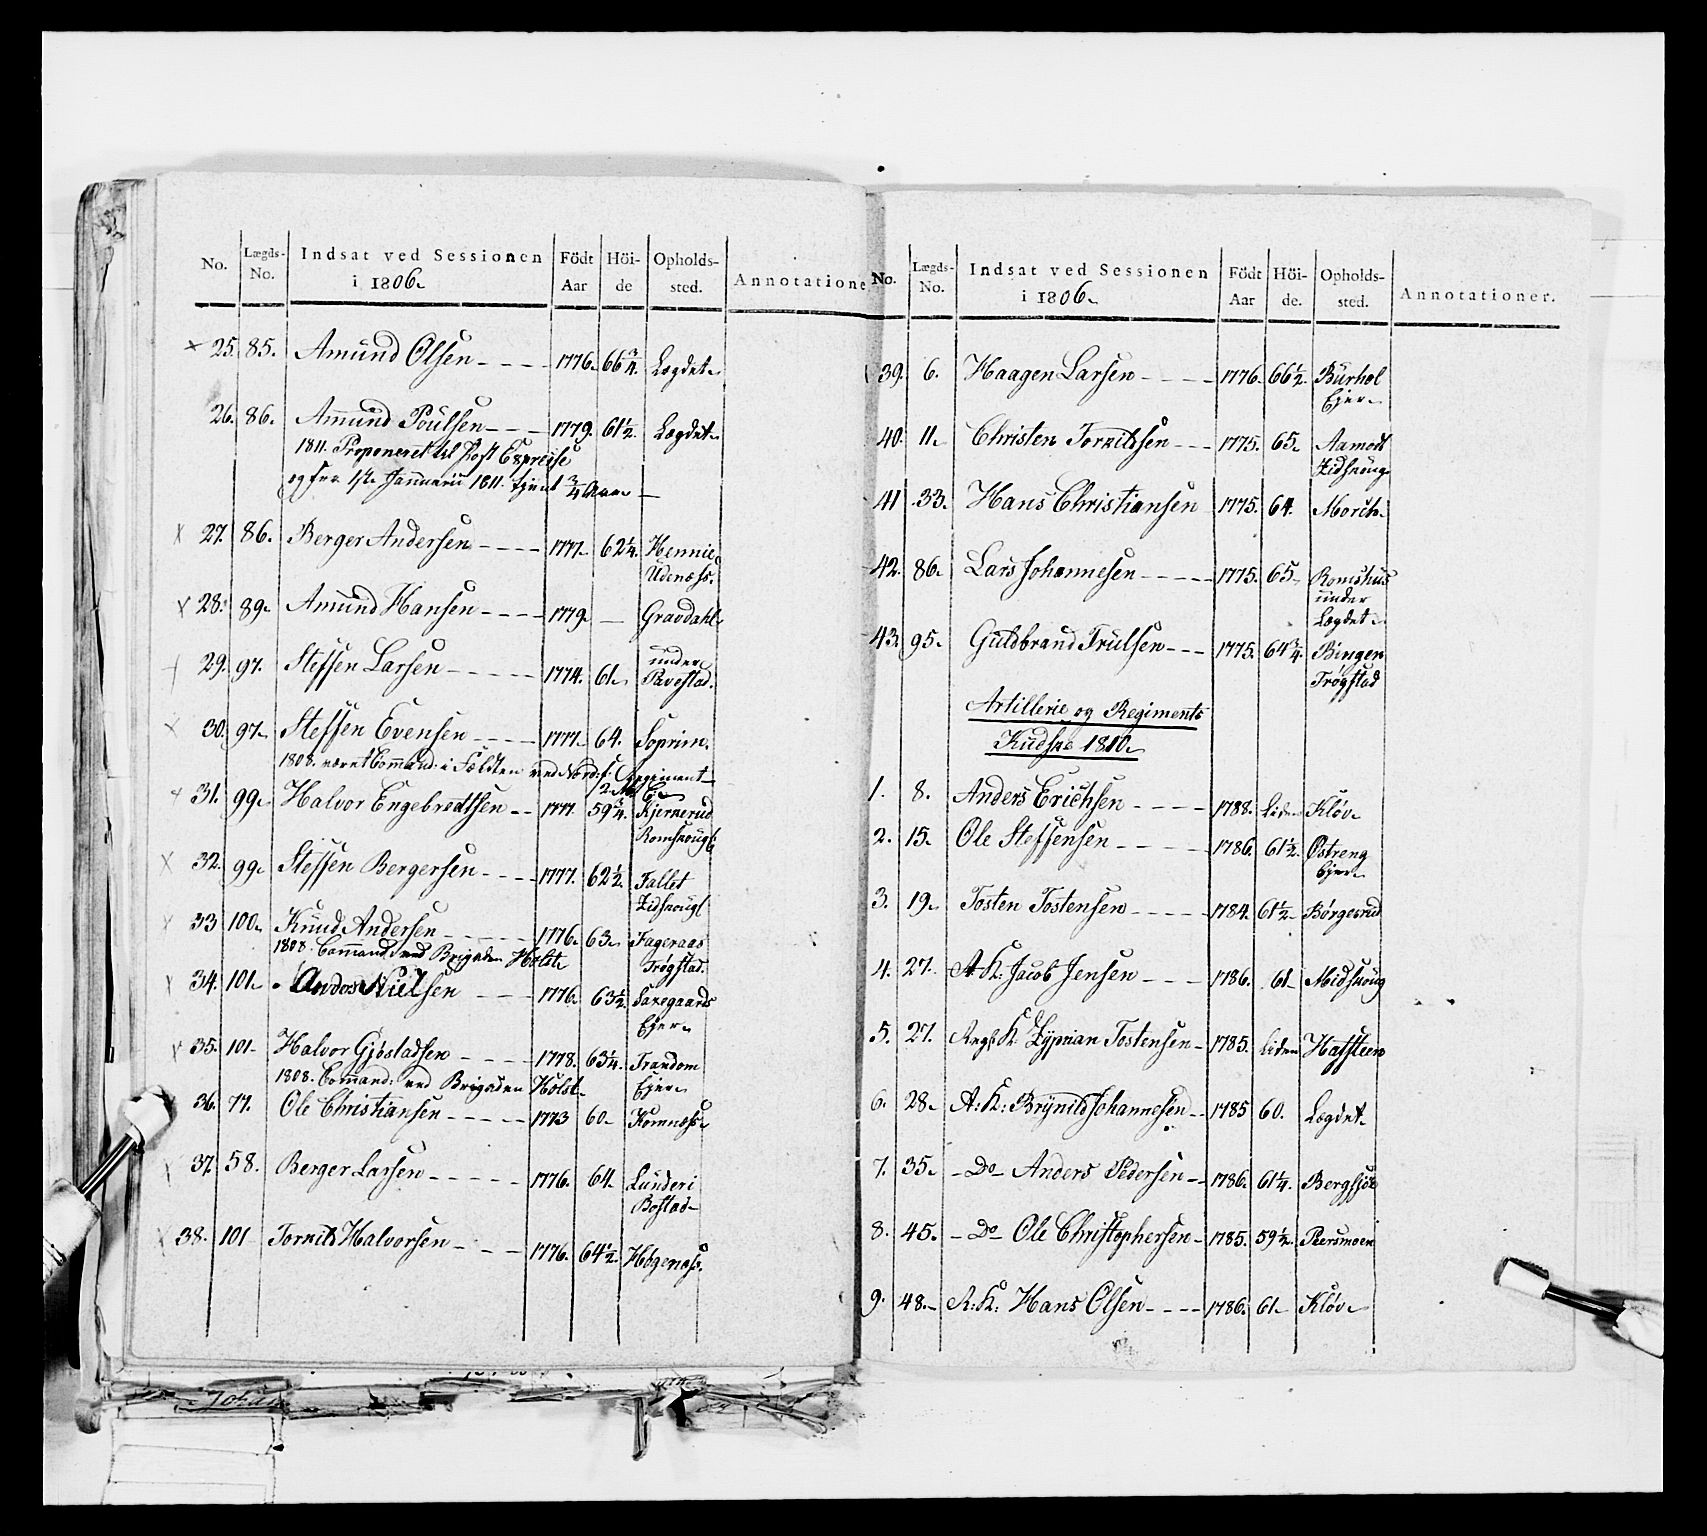 No. Lægds-No. Indsat ved Sessionen i 1806. Födt Aar Höi-de Opholds-sted. Annotatione
× 25. 85. Amund Olsen 1776. 66 3/4. Lægdet.
26. 86. Amund Poulsen 1779. 61 1/2. Lægdet.
1811. Proponeret til Post Expreise
og før 1ste Januarii 1811. tjent 3/4 Aar
× 27. 86. Berger Andersen 1777. 62 1/4. Hennie
Udenæss.
× 28. 89. Amund Hansen 1779. — Gravdahl
29. 97. Steffen Larsen 1774. 61. under
Pavestad.
× 30. 97. Steffen Evensen 1777. 64. Soprim.
1808. været Command: i Fældten ved Nord: f: Regiment
2 Mdr
31. 99. Halvor Engebredtsen 1777. 59 3/4. Kjernerud
Romsnougl
× 32. 99. Steffen Bergersen 1777. 62 1/2. Fallet
Zidsnougl
× 33 100. Knud Andersen 1776. 63. Fageraas
1808. Command: ved Brigaden Holst Trøgstad.
× 34. 101. Anders Nielsen 1776. 63 1/2. Saxegaards
Ejer
× 35. 101. Halvor Gjøstadsen 1778. 63 1/4. Trandom
1808. Command: ved Brigaden Holst. Ejer
36. 77. Ole Christiansen 1773 60. Komnæss
37. 58. Berger Larsen 1776. 64. Lunderi
Bostad
38. 101 Torkild Halvorsen 1776. 64 1/2. Høgenæss.
No. Lægds-No. Indsat ved Sessionen i 1806. Födt Aar Höi-de. Opholds-sted. Annotationer.
39. 6. Haagen Larsen 1776. 66 1/2. Burhol
Ejer
40. 11. Christen Torkildsen 1775. 65. Aamodt
Zidsnoug
41 33. Hans Christiansen 1775. 64. Morch.
42. 86. Lars Johannesen 1775. 65. Romshus
under
Lægdet.
43. 95. Guldbrand Trulsen 1775. 64 3/4. Bingen
Trøgstad
Artillerie og Regiments
Kudske 1810.
1. 8. Anders Erichsen 1788. Liden Kløv
2. 15. Ole Steffensen 1786. 61 1/2. Østreng
Ejer
3. 19. Tosten Tostensen 1784. 61 1/2 Børgerud
4. 27. A. K: Jacob Jensen 1786. 61 Midsnoug
5. 27. K. Zyprian Tostensen 1785. Liden Hafsteen
6. 28. A: K: Brynild Johannesen 1785 60. Lægdet.
7. 35. Do Anders Pedersen 1786. 61 1/4. Bergsjøe
8. 45. Do Ole Christophersen 1785. 59 1/2. Persmoen
9. 48. A: K: Hans Olsen 1786. 61. Kløv